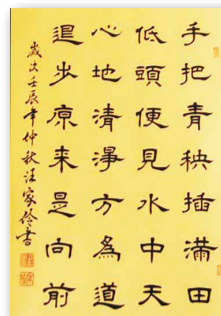 手把青秧插滿田
低頭便見水中天
心地清淨方為道
退步原來是向前
歲次壬辰年仲秋汪家伶書